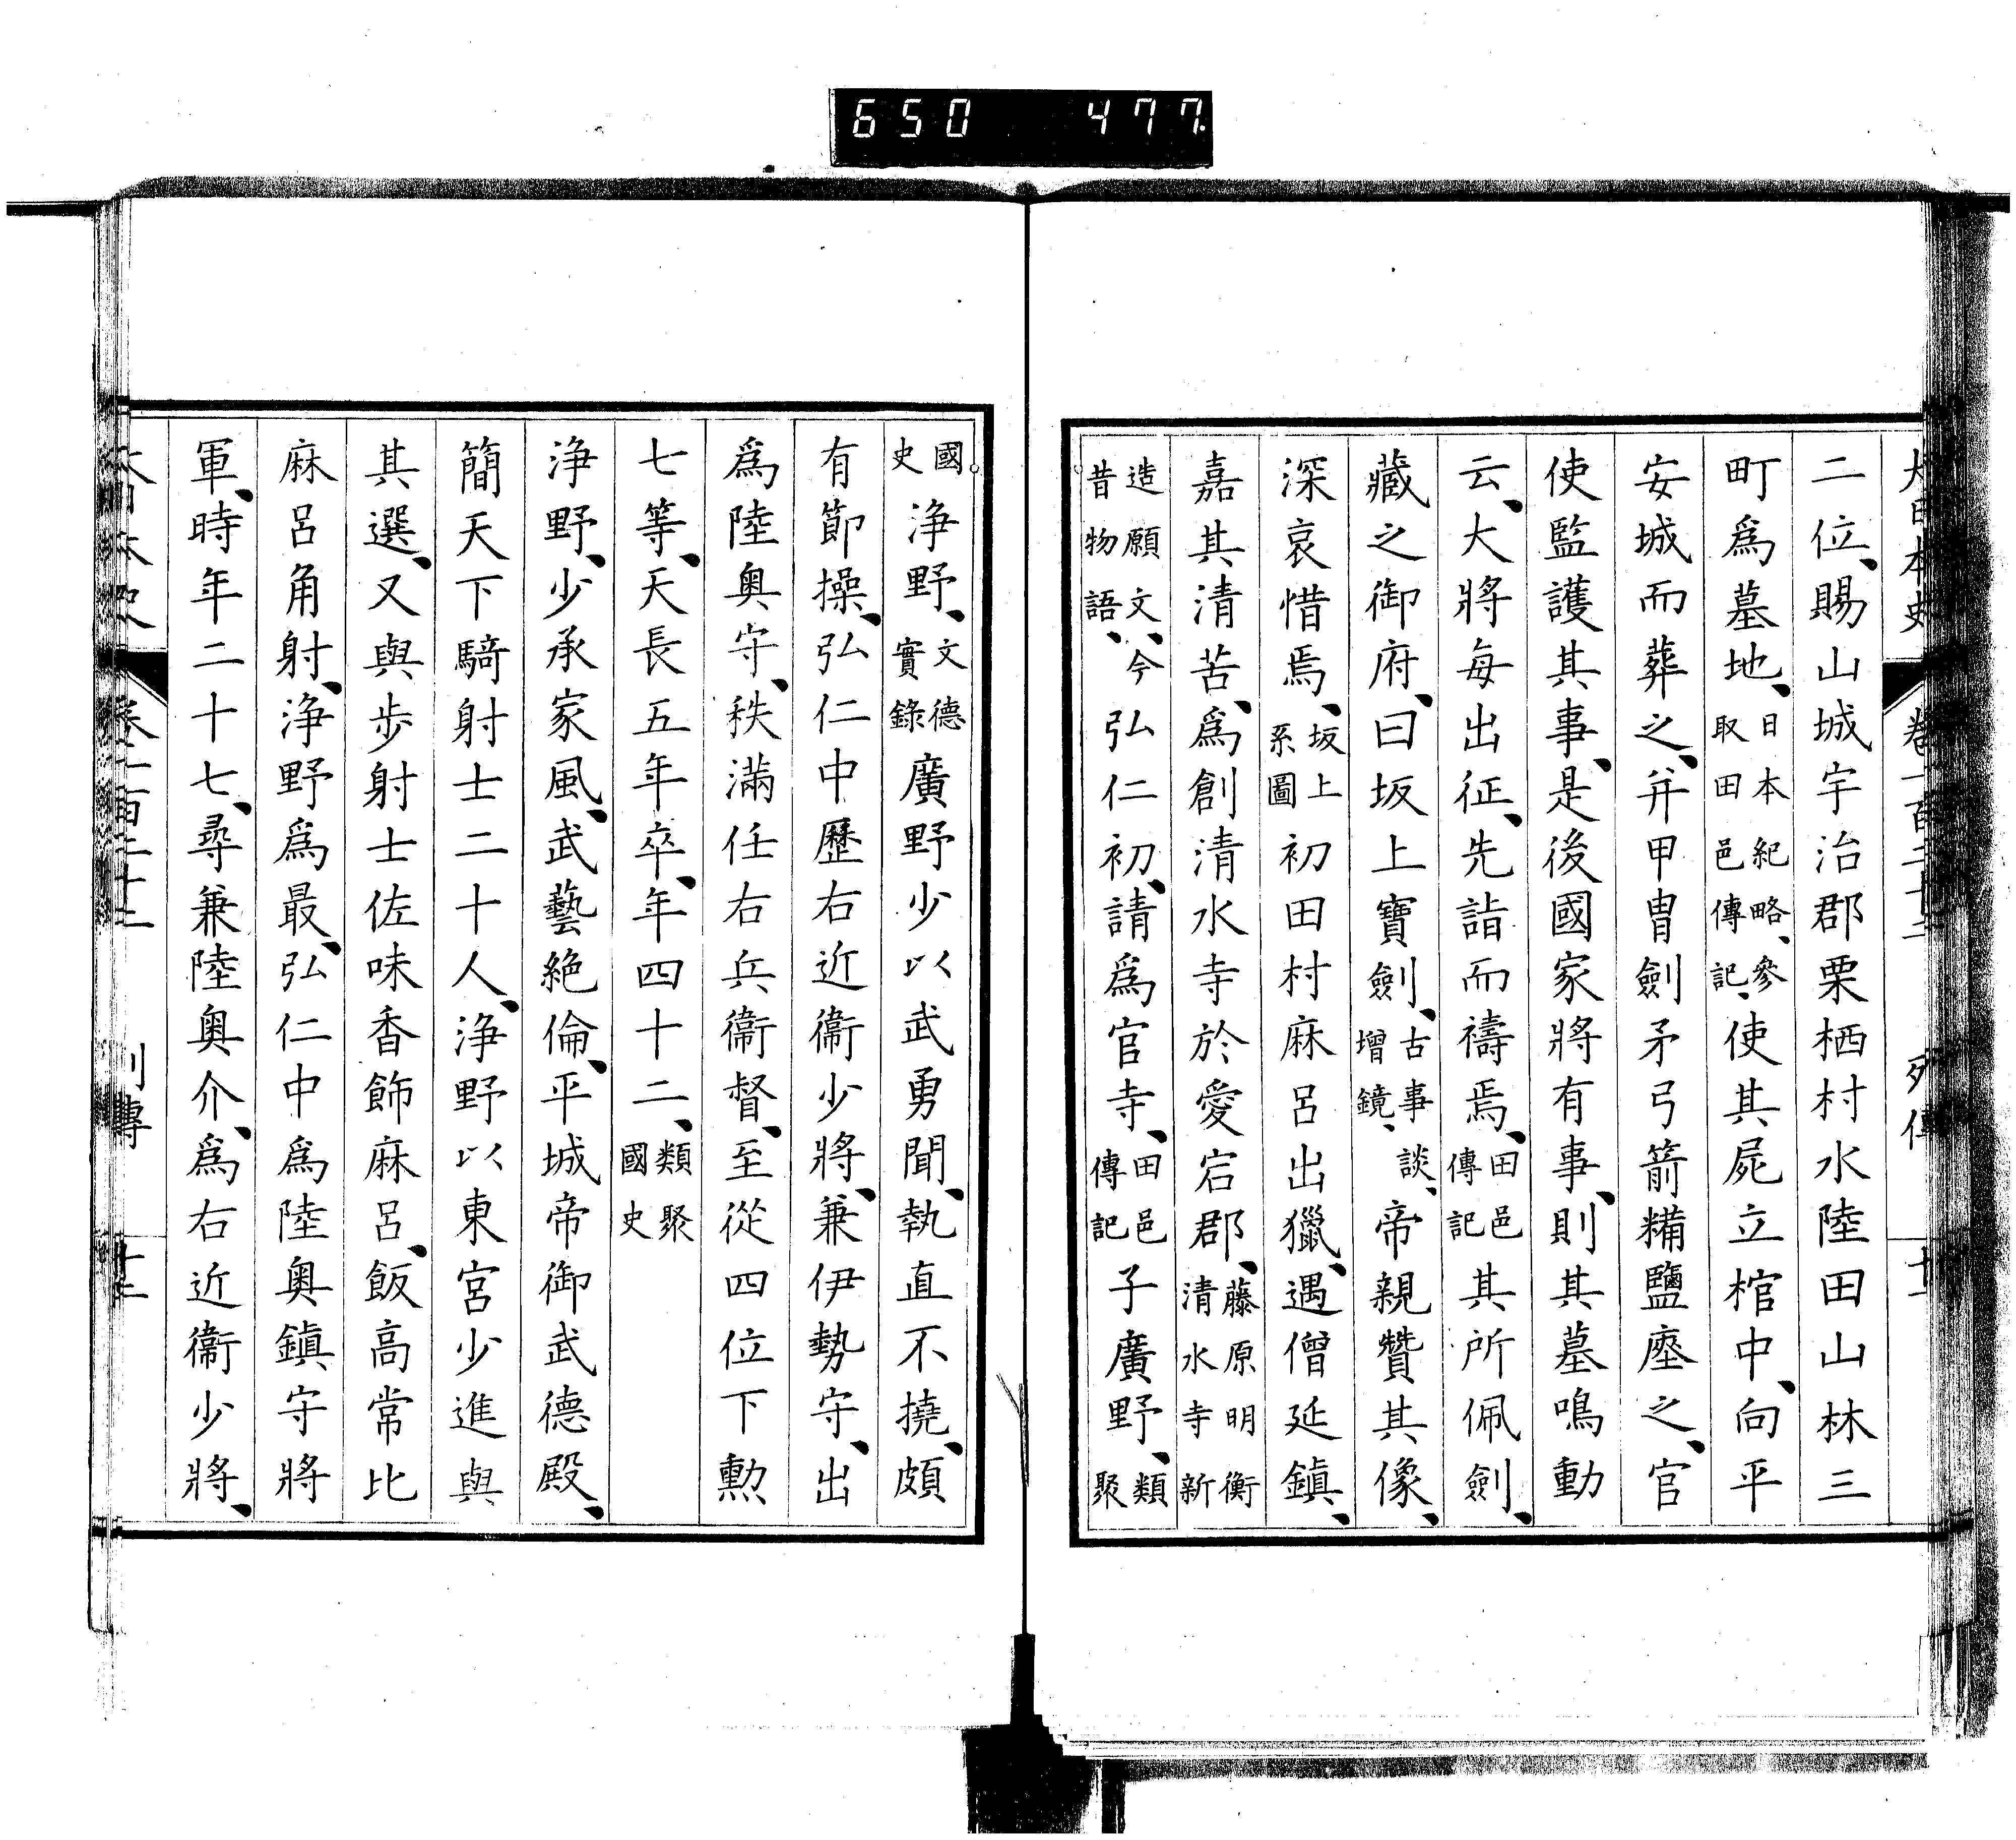 650 477
大日本史 卷一百二十二 列傳 十一
二位、賜山城宇治郡栗栖村水陸田山林三
町爲墓地、日本紀略、參取田邑傳記、使其屍立棺中、向平
安城而葬之、幷甲冑劍矛弓箭糒鹽座之、官
使監護其事、是後國家將有事、則其墓鳴動
云、大將每出征、先詣而禱焉、田邑傳記其所佩劍、
藏之御府、曰坂上寶劍、古事談、增鏡、帝親贊其像、
深哀惜焉、坂上系圖初田村麻呂出獵、遇僧延鎭、
嘉其清苦、爲創清水寺於愛宕郡、藤原明衡清水寺新
造願文、今昔物語、弘仁初、請爲官寺、田邑傳記子廣野、類聚
國史淨野、文德實錄廣野少以武勇聞、執直不撓、頗
有節操、弘仁中歷右近衞少將、兼伊勢守、出
爲陸奧守、秩滿任右兵衞督、至從四位下勳
七等、天長五年卒、年四十二、類聚國史
淨野、少承家風、武藝絕倫、平城帝御武德殿、
簡天下騎射士二十人、淨野以東宮少進與
其選、又與步射士佐味香飾麻呂、飯高常比
麻呂角射、淨野爲最、弘仁中爲陸奧鎭守將
軍、時年二十七、尋兼陸奧介、爲右近衞少將、